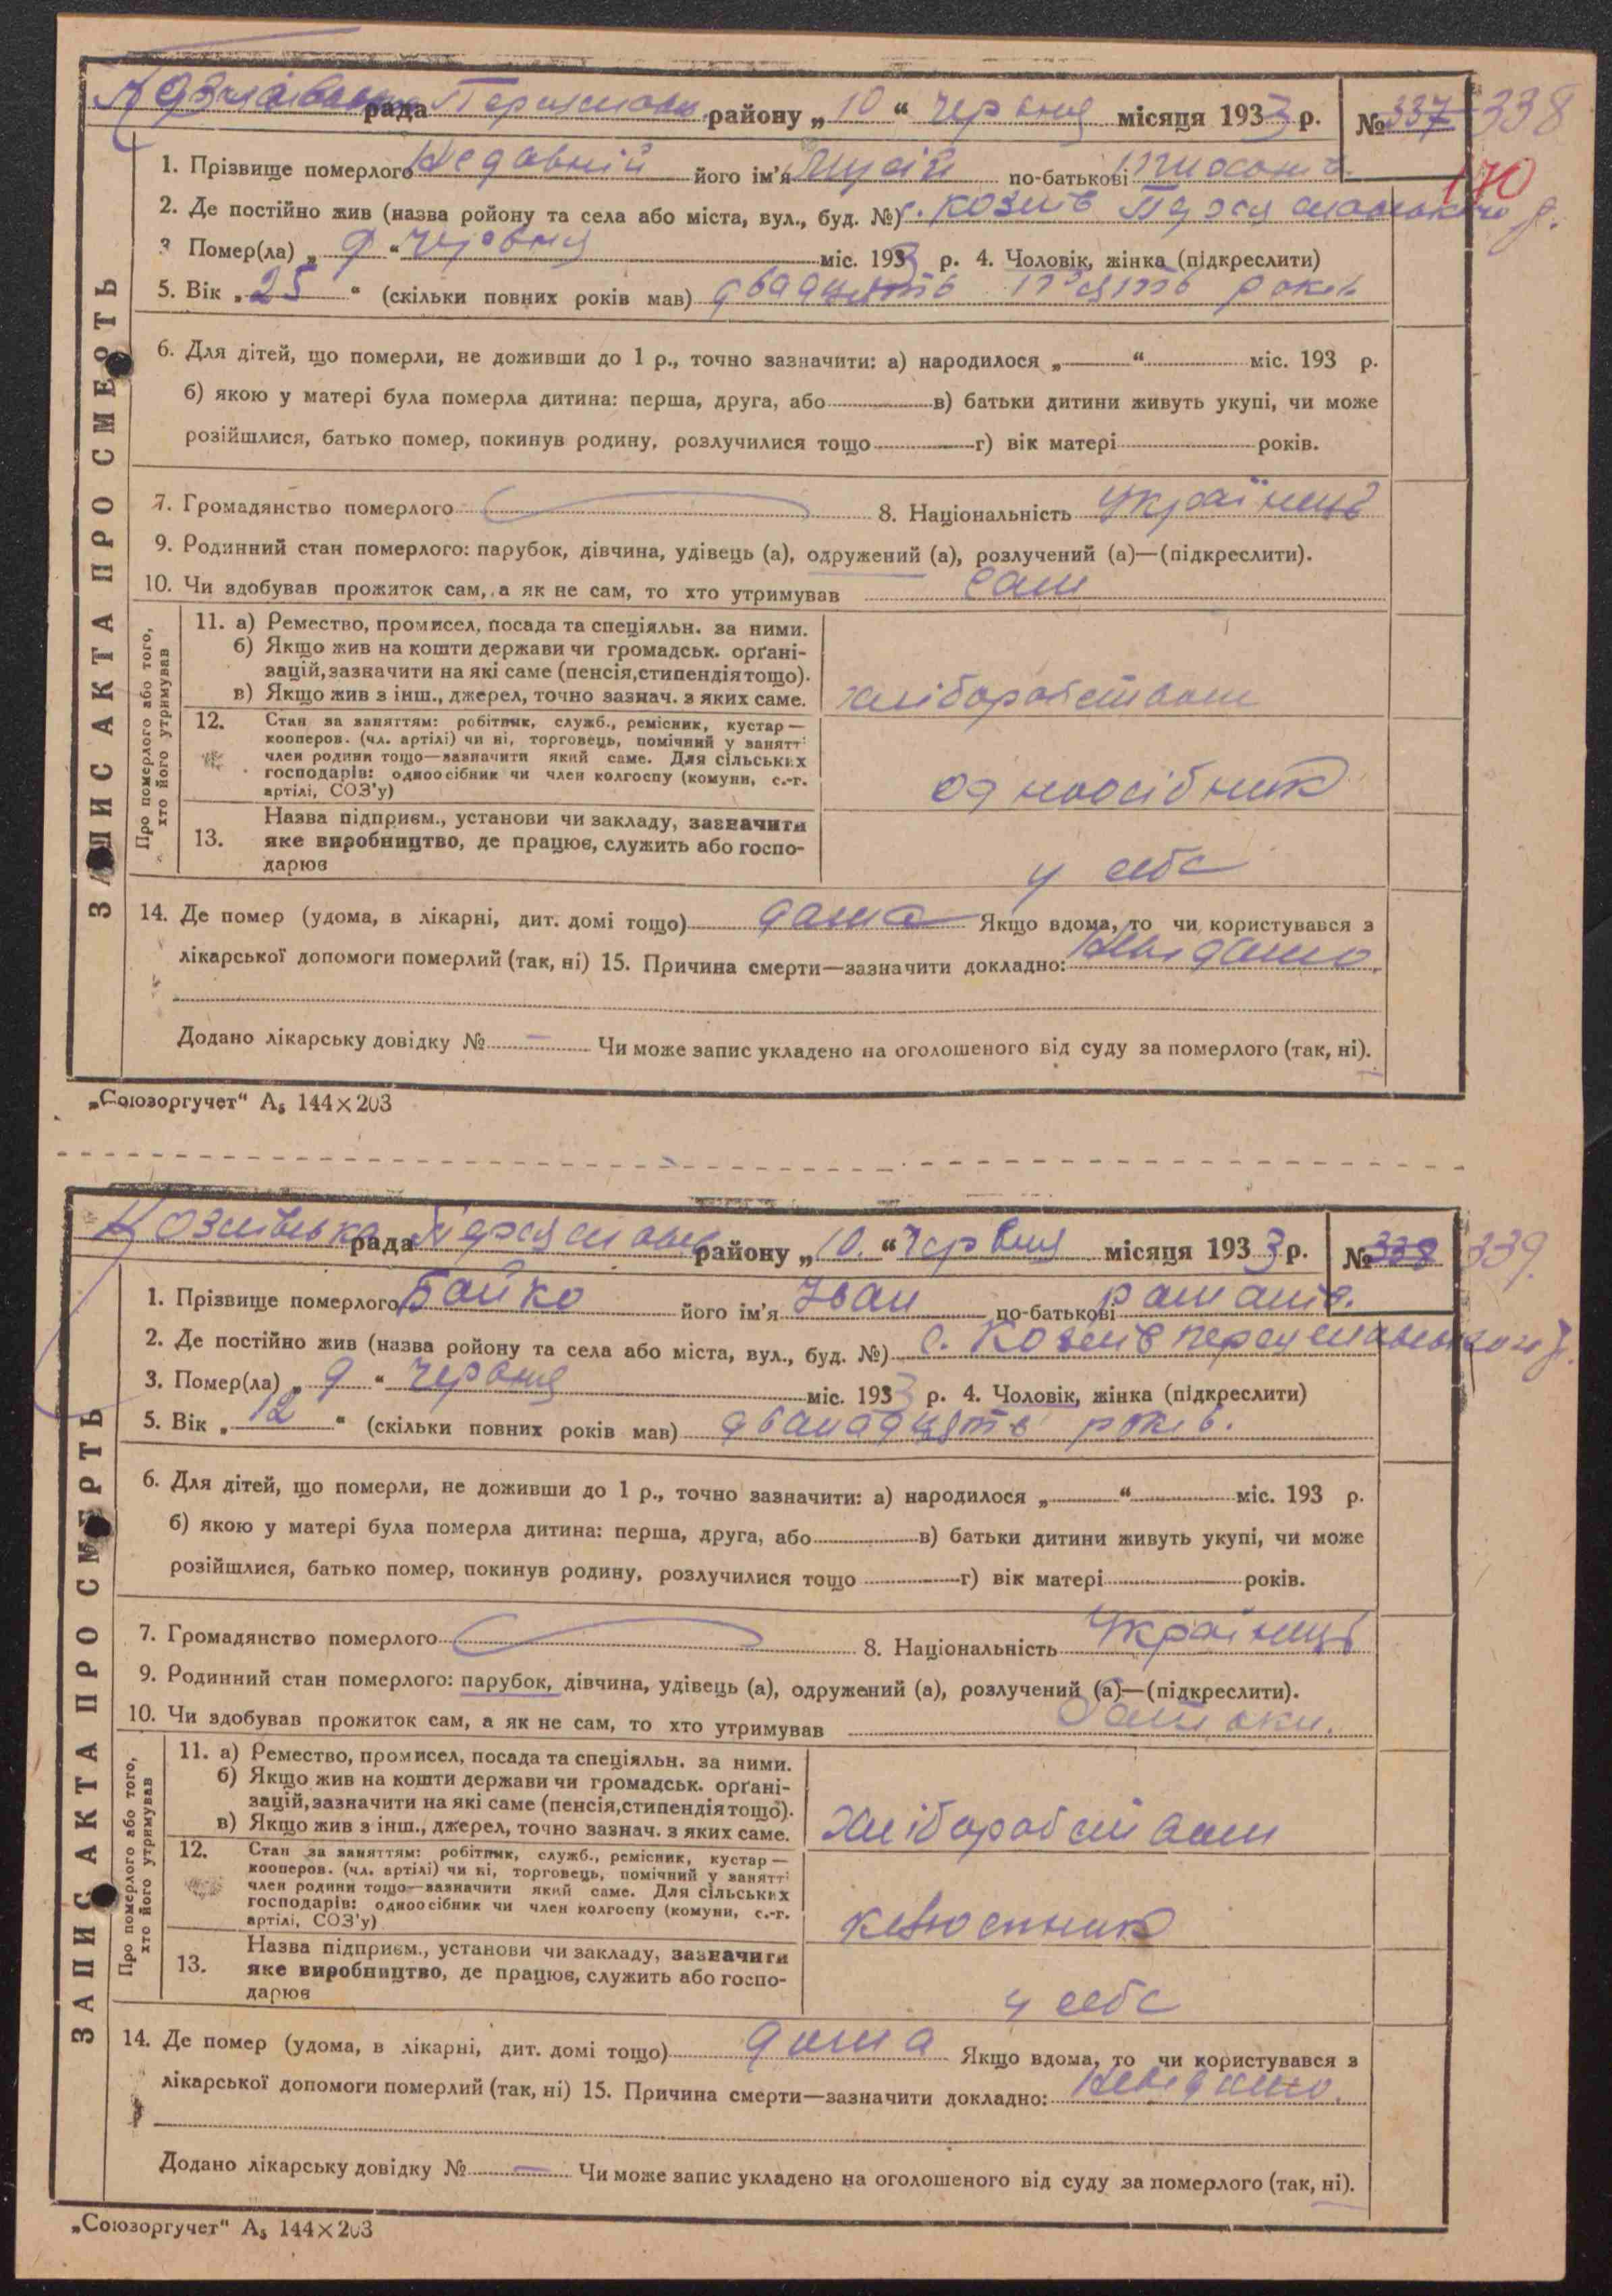 рада Переяславськ району „10“ червня місяця 1933 р. № 337 338
170
1. Прізвище померлого Недавній його ім'я Мусій по-батькові Тихонів.
2. Де постійно жив (назва ройону та села або міста, вул., буд. №) с. Козлів Переяславського р.
3 Помер(ла) „ 9 “ червня міс. 1933 р. 4. Чоловік, жінка (підкреслити)
5. Вік „ 25 “ (скільки повних років мав) двадцять п'ять років
6. Для дітей, що померли, не доживши до 1 р., точно зазначити: а) народилося „ “ міс. 193 р.
б) якою у матері була померла дитина: перша, друга, або в) батьки дитини живуть укупі, чи може
розійшлися, батько помер, покинув родину, розлучилися тощо г) вік матері років.
7. Громадянство померлого 8. Національність українець
9. Родинний стан померлого: парубок, дівчина, удівець (а), одружений (а), розлучений (а)—(підкреслити).
10. Чи здобував прожиток сам, а як не сам, то хто утримував сам
ЗАПИС АКТА ПРО СМЕРТЬ
Про померлого або того, хто його утримував
11. а) Ремество, промисел, посада та спеціяльн. за ними.
б) Якщо жив на кошти держави чи громадськ. орґані-
зацій, зазначити на які саме (пенсія, стипендія тощо).
в) Якщо жив з інш., джерел, точно зазнач. з яких саме. хліборобством
12. Стан за заняттям: робітник, служб., ремісник, кустар—
кооперов. (чл. артілі) чи ні, торговець, помічний у занятт
член родини тощо—зазначити який саме. Для сільських
господарів: одноосібник чи член колгоспу (комуни, с.-г.
артілі, СОЗ'у) одноосібник
13. Назва підприєм., установи чи закладу, зазначити
яке виробництво, де працює, служить або госпо-
дарює у себе
14. Де помер (удома, в лікарні, дит. домі тощо) дома Якщо вдома, то чи користувався з
лікарської допомоги померлий (так, ні) 15. Причина смерти—зазначити докладно: Невідомо.
Додано лікарську довідку № — Чи може запис укладено на оголошеного від суду за померлого (так, ні).
„Союзоргучет“ А₅ 144×203
Козлівська рада Переяславськ району „10.“ червня місяця 1933 р. № 338 339.
1. Прізвище померлого Бойко його ім'я Іван по-батькові
2. Де постійно жив (назва ройону та села або міста, вул., буд. №) с. Козлів Переяславського р.
3. Помер(ла) „ 9 “ червня міс. 1933 р. 4. Чоловік, жінка (підкреслити)
5. Вік „ 12 “ (скільки повних років мав) дванадцять років.
6. Для дітей, що померли, не доживши до 1 р., точно зазначити: а) народилося „ “ міс. 193 р.
б) якою у матері була померла дитина: перша, друга, або в) батьки дитини живуть укупі, чи може
розійшлися, батько помер, покинув родину, розлучилися тощо г) вік матері років.
7. Громадянство померлого 8. Національність українець
9. Родинний стан померлого: парубок, дівчина, удівець (а), одружений (а), розлучений (а)—(підкреслити).
10. Чи здобував прожиток сам, а як не сам, то хто утримував батьки.
ЗАПИС АКТА ПРО СМЕРТЬ
Про померлого або того, хто його утримував
11. а) Ремество, промисел, посада та спеціяльн. за ними.
б) Якщо жив на кошти держави чи громадськ. орґані-
зацій, зазначити на які саме (пенсія, стипендія тощо).
в) Якщо жив з інш., джерел, точно зазнач. з яких саме. хліборобством
12. Стан за заняттям: робітник, служб., ремісник, кустар—
кооперов. (чл. артілі) чи ні, торговець, помічний у занятт
член родини тощо—зазначити який саме. Для сільських
господарів: одноосібник чи член колгоспу (комуни, с.-г.
артілі, СОЗ'у)
13. Назва підприєм., установи чи закладу, зазначити
яке виробництво, де працює, служить або госпо-
дарює у себе
14. Де помер (удома, в лікарні, дит. домі тощо) дома Якщо вдома, то чи користувався з
лікарської допомоги померлий (так, ні) 15. Причина смерти—зазначити докладно: Невідомо.
Додано лікарську довідку № — Чи може запис укладено на оголошеного від суду за померлого (так, ні).
„Союзоргучет“ А₅ 144×203